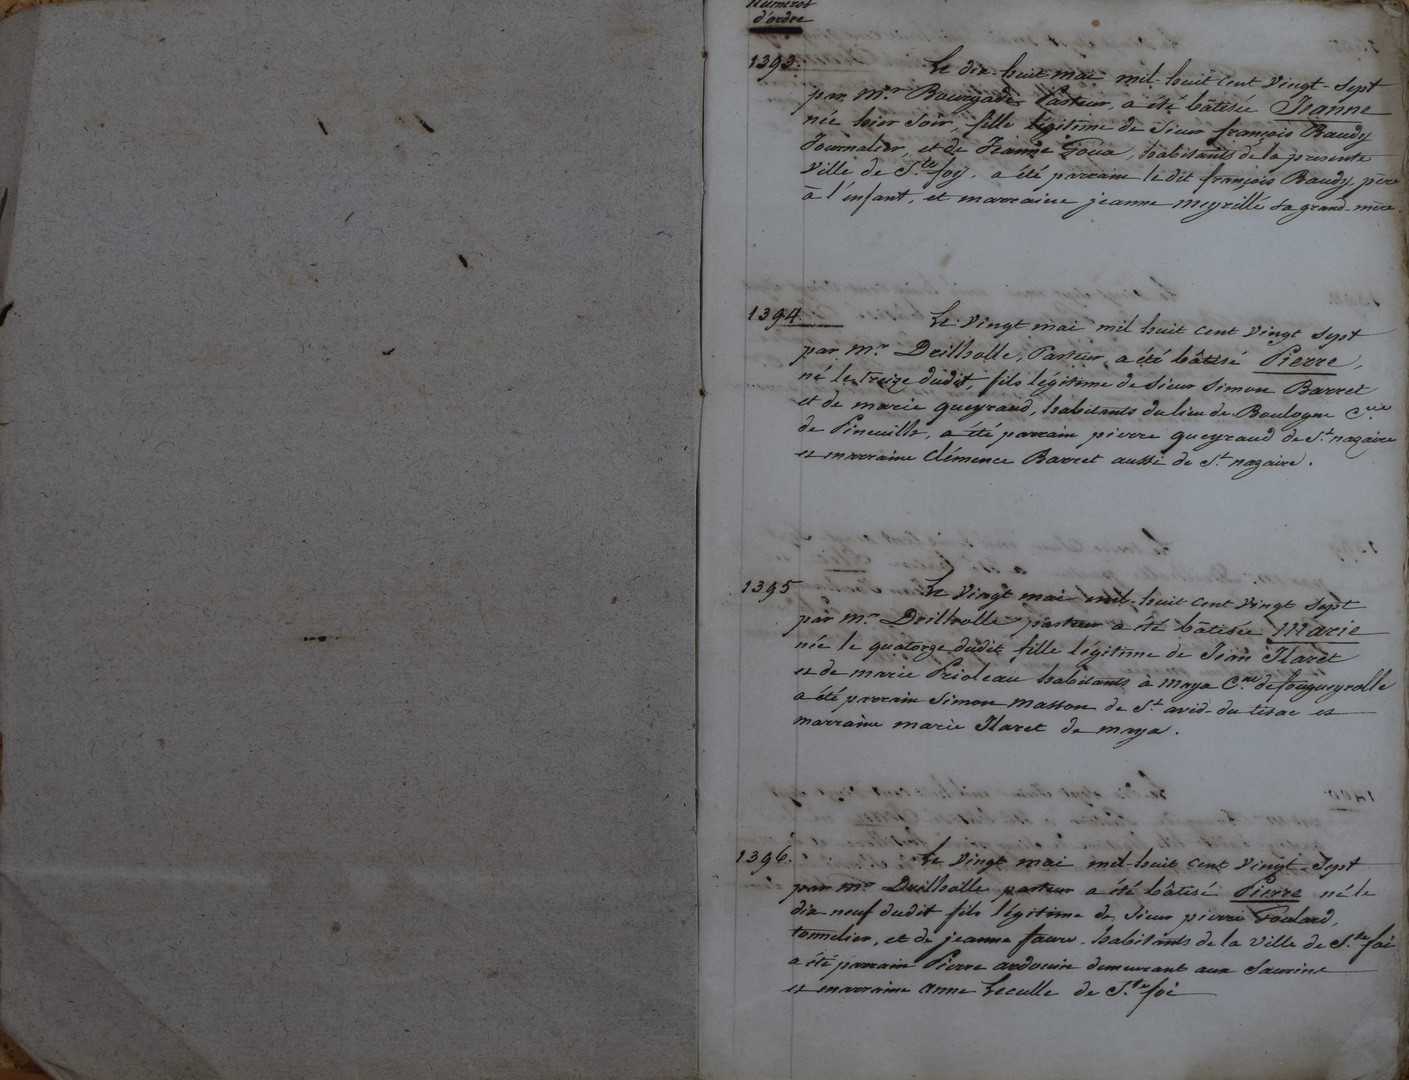 Numéros
d'ordre
1393. Le dix-huit mai mil-huit cent vingt-sept
par Mr. Bourgade Pasteur, a été bâtisée Jeanne
née hier soir, fille légitime de Sieur françois Baudy
Journalier, et de Jeanne Goua, habitants de la presente
ville de Ste. foy, a été parrain le dit françois Baudy père
à l'enfant, et marraine jeanne meyrillé sa grand-mère.
1394 Le vingt mai mil huit cent vingt sept
par Mr. Drilholle, Pasteur, a été bâtisé Pierre,
né le treize dudit, fils légitime de Sieur Simon Barret
et de marie queyraud, habitants du lieu de Boulogne Cne
de Pineuilh, a été parrain pierre queyraud de St. nazaire
et marraine Clémence Barret aussi de St. nazaire.
1395 Le vingt mai mil-huit cent vingt sept
par Mr. Drilholle pasteur a été bâtisée Marie
née le quatorze dudit fille légitime de Jean Haret
et de marie Prioleau habitants à maya Cne. de fougueyrolle
a été parrain Simon masson de St avid-du tisac et
marraine marie Haret de maya.
1396. Le vingt mai mil-huit cent vingt-sept
par Mr Drilholle pasteur a été bâtisé Pierre né le
dix neuf dudit fils légitime de Sieur pierre Goulard,
tonnelier, et de jeanne faure, habitants de la ville de Ste. foi
a été parrain Pierre ardouin demeurant aux Saurins
et marraine anne Leculle de Ste. foi